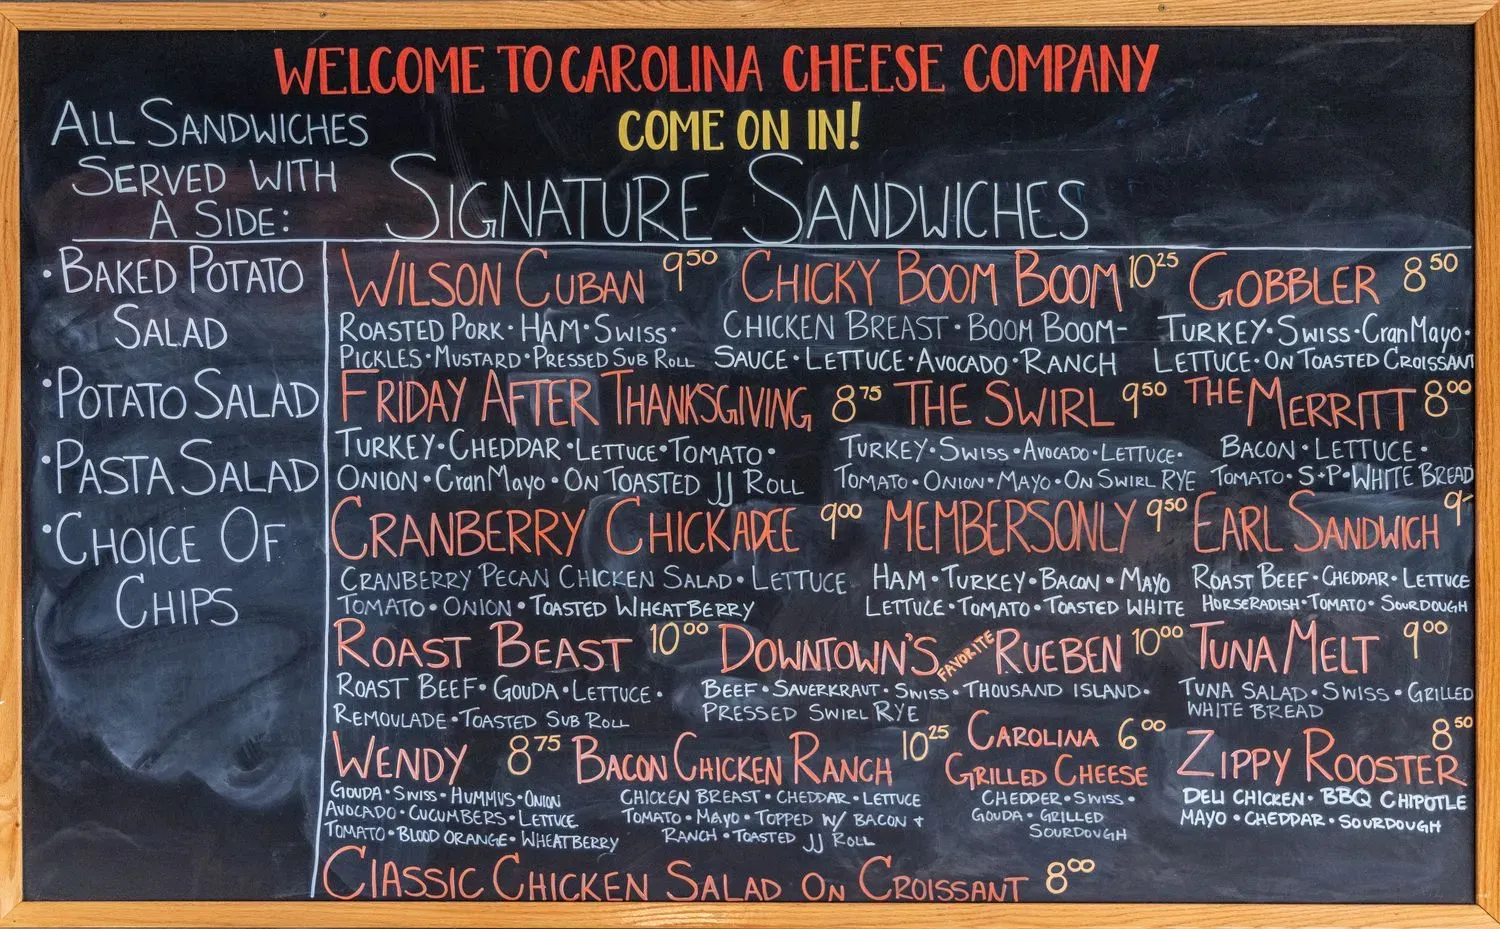 WELCOME TO CAROLINA CHEESE COMPANY
COME ON IN!
ALL SANDWICHES
SERVED WITH
A SIDE:
SIGNATURE SANDWICHES
• BAKED POTATO
SALAD
• POTATO SALAD
• PASTA SALAD
• CHOICE OF
CHIPS
WILSON CUBAN 9⁵⁰
ROASTED PORK • HAM • SWISS •
PICKLES • MUSTARD • PRESSED SUB ROLL
CHICKY BOOM BOOM 10²⁵
CHICKEN BREAST • BOOM BOOM-
SAUCE • LETTUCE • AVOCADO • RANCH
GOBBLER 8⁵⁰
TURKEY • SWISS • CranMayo •
LETTUCE • ON TOASTED CROISSANT
FRIDAY AFTER THANKSGIVING 8⁷⁵
TURKEY • CHEDDAR • LETTUCE • TOMATO •
ONION • CranMayo • ON TOASTED JJ ROLL
THE SWIRL 9⁵⁰
TURKEY • SWISS • AVOCADO • LETTUCE •
TOMATO • ONION • MAYO • ON SWIRL RYE
THE MERRITT 8⁰⁰
BACON • LETTUCE •
TOMATO • S+P • WHITE BREAD
CRANBERRY CHICKADEE 9⁰⁰
CRANBERRY PECAN CHICKEN SALAD • LETTUCE
TOMATO • ONION • TOASTED WHEATBERRY
MEMBERSONLY 9⁵⁰
HAM • TURKEY • BACON • MAYO
LETTUCE • TOMATO • TOASTED WHITE
EARL SANDWICH 9-
ROAST BEEF • CHEDDAR • LETTUCE
HORSERADISH • TOMATO • SOURDOUGH
ROAST BEAST 10⁰⁰
ROAST BEEF • GOUDA • LETTUCE •
REMOULADE • TOASTED SUB ROLL
DOWNTOWN'S FAVORITE RUEBEN 10⁰⁰
BEEF • SAUERKRAUT • SWISS • THOUSAND ISLAND •
PRESSED SWIRL RYE
TUNA MELT 9⁰⁰
TUNA SALAD • SWISS • GRILLED
WHITE BREAD
WENDY 8⁷⁵
GOUDA • SWISS • HUMMUS • ONION
AVOCADO • CUCUMBERS • LETTUCE
TOMATO • BLOOD ORANGE • WHEATBERRY
BACON CHICKEN RANCH 10²⁵
CHICKEN BREAST • CHEDDAR • LETTUCE
TOMATO • MAYO • TOPPED W/ BACON +
RANCH • TOASTED JJ ROLL
CAROLINA 6⁰⁰
GRILLED CHEESE
CHEDDER • SWISS •
GOUDA • GRILLED
SOURDOUGH
8⁵⁰
ZIPPY ROOSTER
DELI CHICKEN • BBQ CHIPOTLE
MAYO • CHEDDAR • SOURDOUGH
CLASSIC CHICKEN SALAD ON CROISSANT 8⁰⁰